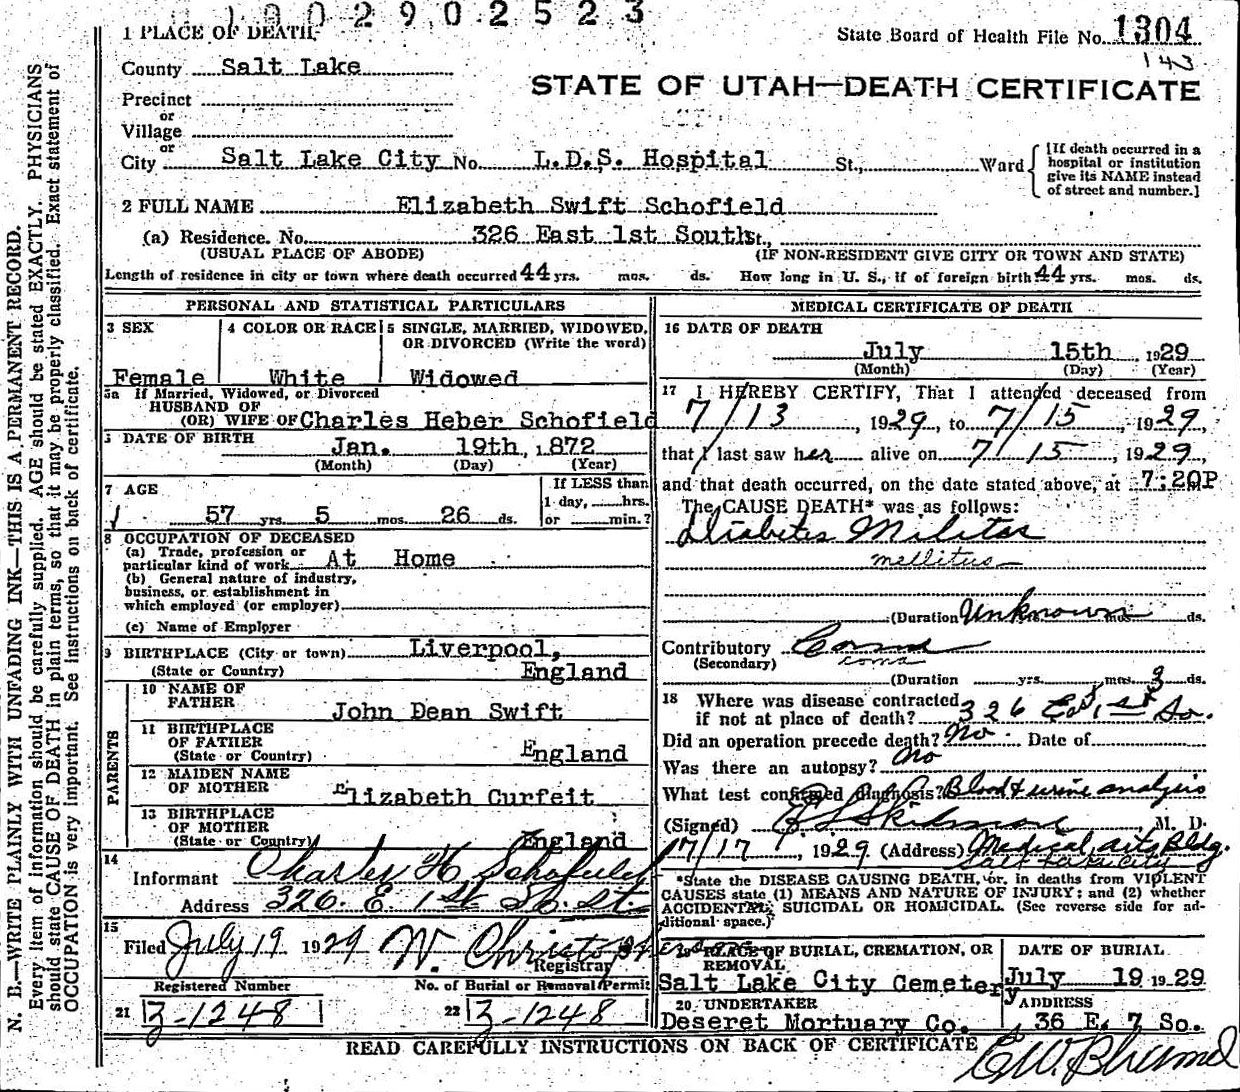 1 9 0 2 9 0 2 5 2 3
1 PLACE OF DEATH
State Board of Health File No. 1304
143
County Salt Lake
STATE OF UTAH—DEATH CERTIFICATE
Precinct
or
Village
or
City Salt Lake City No. L.D.S. Hospital St., Ward
[If death occurred in a
hospital or institution
give its NAME instead
of street and number.]
2 FULL NAME Elizabeth Swift Schofield
(a) Residence. No. 326 East 1st South St.,
(USUAL PLACE OF ABODE) (IF NON-RESIDENT GIVE CITY OR TOWN AND STATE)
Length of residence in city or town where death occurred 44 yrs. mos. ds. How long in U. S., if of foreign birth 44 yrs. mos. ds.
PERSONAL AND STATISTICAL PARTICULARS
3 SEX
Female
4 COLOR OR RACE
White
5 SINGLE, MARRIED, WIDOWED,
OR DIVORCED (Write the word)
Widowed
5a If Married, Widowed, or Divorced
HUSBAND OF
(OR) WIFE OF Charles Heber Schofield
DATE OF BIRTH
Jan. 19th, 1872
(Month) (Day) (Year)
7 AGE
57 yrs. 5 mos. 26 ds.
If LESS than
1 day, hrs.
or min.?
8 OCCUPATION OF DECEASED
(a) Trade, profession or
particular kind of work At Home
(b) General nature of industry,
business, or establishment in
which employed (or employer)
(c) Name of Employer
9 BIRTHPLACE (City or town) Liverpool,
(State or Country) England
PARENTS
10 NAME OF
FATHER
John Dean Swift
11 BIRTHPLACE
OF FATHER
(State or Country) England
12 MAIDEN NAME
OF MOTHER Elizabeth Curfeit
13 BIRTHPLACE
OF MOTHER
(State or Country) England
14
Informant Charles H Schofield
Address 326. E 1st So. St.
15
Filed July 19 1929 W. Christopherson
Registrar
Registered Number No. of Burial or Removal Permit
21 Z-1248 22 Z-1248
MEDICAL CERTIFICATE OF DEATH
16 DATE OF DEATH
July 15th, 1929
(Month) (Day) (Year)
17 I HEREBY CERTIFY, That I attended deceased from
7/13, 1929, to 7/15, 1929,
that I last saw her alive on 7/15, 1929,
and that death occurred, on the date stated above, at 7:20P
The CAUSE DEATH* was as follows:
Diabites Militas
mellitus
(Duration Unknown mos. ds.
Contributory Coma
(Secondary) coma
(Duration yrs. mos. 3 ds.
18 Where was disease contracted
if not at place of death? 326 East 1st So.
Did an operation precede death? No Date of
Was there an autopsy? No
What test confirmed diagnosis? Blood & urine analysis
(Signed) M. D.
7/17, 1929 (Address) Medical Arts Bldg.
Salt Lake City
*State the DISEASE CAUSING DEATH, or, in deaths from VIOLENT
CAUSES state (1) MEANS AND NATURE OF INJURY; and (2) whether
ACCIDENTAL, SUICIDAL OR HOMICIDAL. (See reverse side for ad-
ditional space.)
19 PLACE OF BURIAL, CREMATION, OR
REMOVAL
Salt Lake City Cemetery
DATE OF BURIAL
July 19 1929
20 UNDERTAKER
Deseret Mortuary Co.
ADDRESS
36 E. 7 So.
READ CAREFULLY INSTRUCTIONS ON BACK OF CERTIFICATE
N. B.—WRITE PLAINLY WITH UNFADING INK—THIS IS A PERMANENT RECORD.
Every item of information should be carefully supplied. AGE should be stated EXACTLY. PHYSICIANS
should state CAUSE OF DEATH in plain terms, so that it may be properly classified. Exact statement of
OCCUPATION is very important. See instructions on back of certificate.